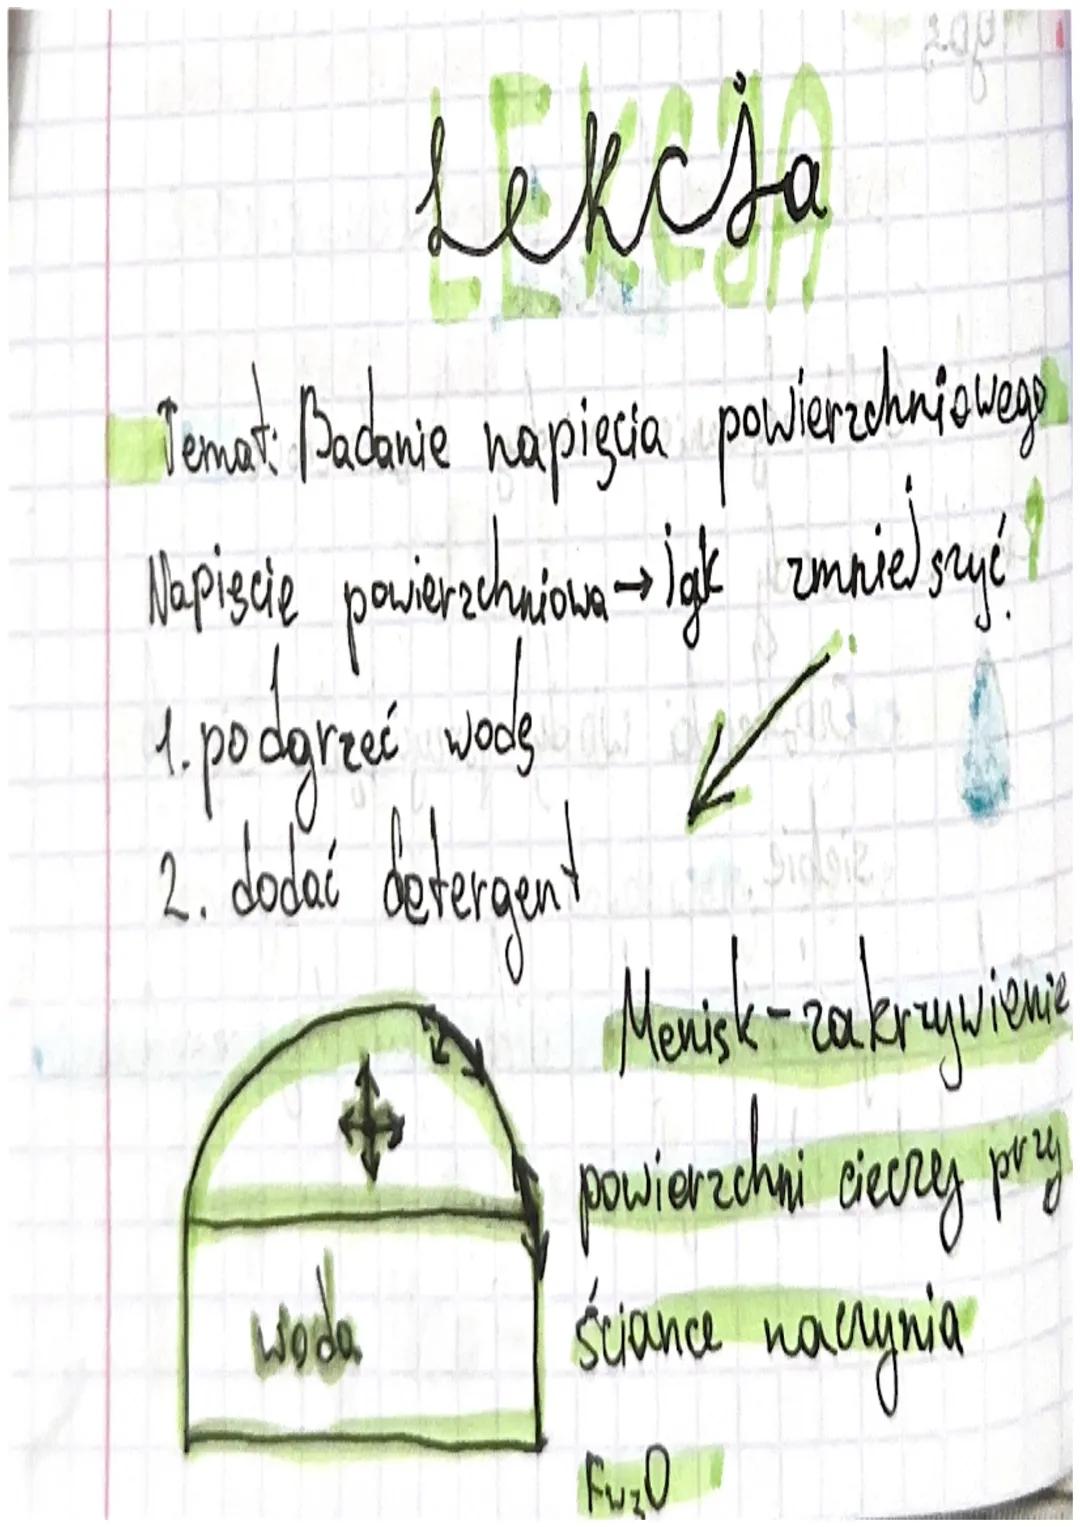 Lekcja
Temat: Badanie napięcia powierzchniowego
Napięcie powierzchniowa → jak zmniejszyć?
1. podgrzeć wodę
2. dodać detergent
Menisk - zakrzywienie
powierzchni cieczy przy
ściance naczynia
woda